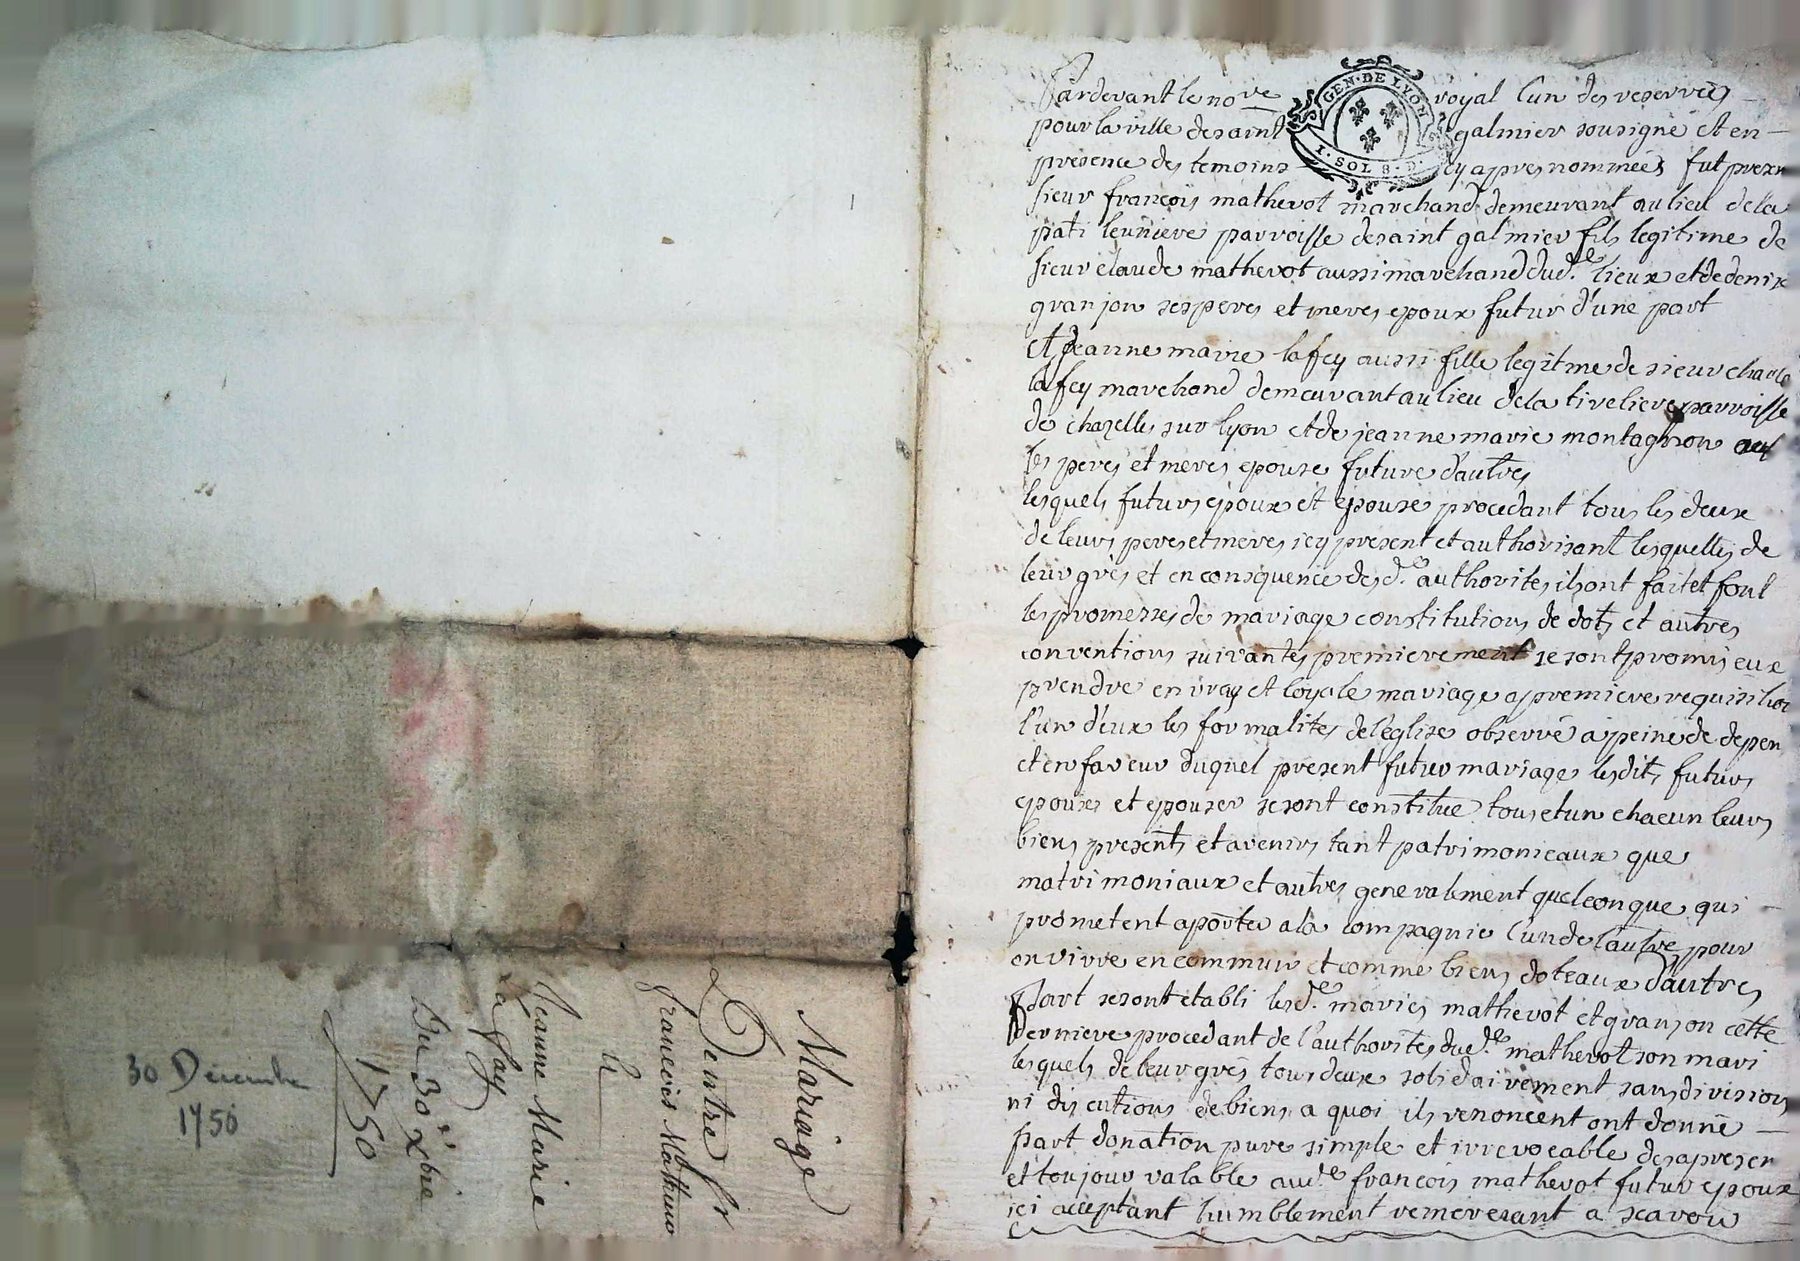 Mariage
D'entre Sr
françois Mathevo
&
Jeanne Marie
Lafay
Du 30e Xbre
1750
30 Décembre
1750
GEN·DE LYON
1·SOL 8·D·
Pardevant le nore royal l'un des reservés
pour la ville de saint galmier sousigné et en
presence des temoins cy apres nommées fut presen
sieur françois mathevot marchand demeurant au lieu de la
pati parroisse de saint galmier fils legitime de
sieur claude mathevot aussi marchand dud.e lieux et de denise
granjon ses peres et meres epoux futur d'une part
Et jeanne marie lafey aussi fille legitme de sieur charle
lafey marchand demeurant au lieu de la tireliere parroisse
de chazelle sur lyon et de jeanne marie montagnon
ses peres et meres epouse future d'autres
lesquels futurs epoux et epouse procedant tous les deux
de leurs peres et meres icy present et authorisant lesquelles de
leur grés et en consquence des d.e authorites ils ont fait et font
les promesses de mariage constitutions de dots et autres
conventions suivantes premierement se sont promis eux
prendre en vray et loyale mariage a premiere requisitior
l'un d'eux les formalites de l'eglise observé a peine de depen
et en faveur duquel present futur mariage lesdits futurs
epouxs et epouser se sont constitué tous et un chacun leurs
biens presents et avenirs tant patrimonieaux que
matrimoniaux et autres generalement quelconque qui
prometent aporter a la compagnie l'un de l'autre pour
en vivre en commun et comme biens doteaux d'autres
part se sont etabli les d.e mariés mathevot et granjon cette
derniere procedant de l'authorites dud.e mathevot son mari
lesquels de leur grés tous deux solidairement sans division
ni discutions de biens a quoi ils renoncent ont donné
part donation pure simple et irrevocable des apresen
et toujour valable aud.e françois mathevot futur epoux
ici acceptant humblement remeresant a scavoir